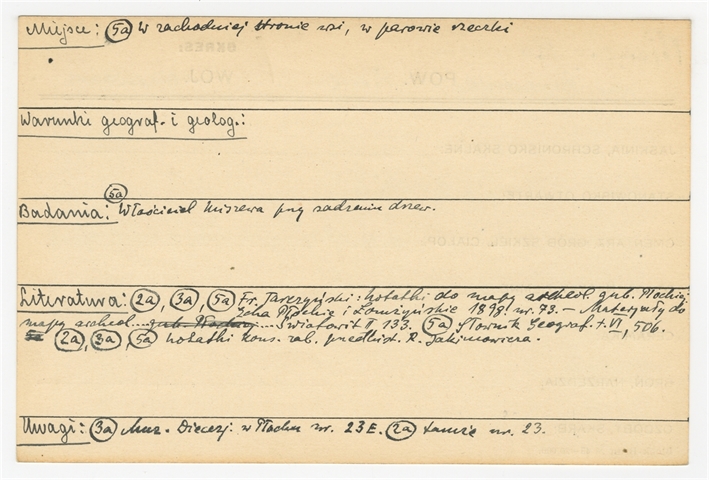 Miejsce: (5a) W zachodniej stronie wsi, w parowie rzeczki
Warunki geograf. i geolog.:
(5a)
Badania: Właściciel Miszewa przy sadzeniu drzew.
Literatura: (2a), (3a), (5a) Fr. Tarczyński: Notatki do mapy archeol. gub. Płockiej
Echa Płockie i Łomżyńskie 1898. nr. 73. – Materyały do
mapy archeol. ... gub. Płockiej ... Światowit II 133. (5a) Słownik Geograf. t. VI, 506.
5a (2a), (3a), (5a) Notatki kons. zab. przedhist. R. Jakimowicza.
Uwagi: (3a) Muz. Diecezj. w Płocku nr. 23 E. (2a) tamże nr. 23.